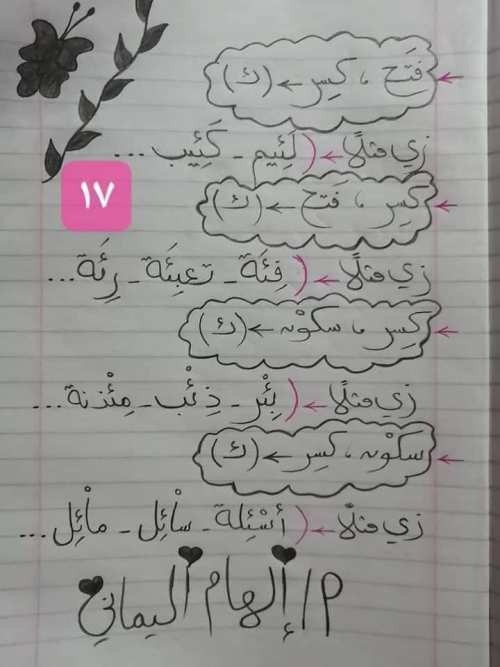 فَتَح ، كِسِر ← (ئ)
زي مثلًا ← ( لَئِيم - كَئِيب ...
١٧
كِسِر ، فَتَح ← (ئ)
زي مثلًا ← ( فِئَة - تعبِئَة - رِئَة ...
كِسِر ، سكوْن ← (ئ)
زي مثلًا ← ( بِئْر - ذِئْب - مِئْذنة ...
سكوْن ، كِسِر ← (ئ)
زي مثلًا ← ( أسْئِلة - ساْئِل - ماْئِل ...
م/ إلهام اليماني